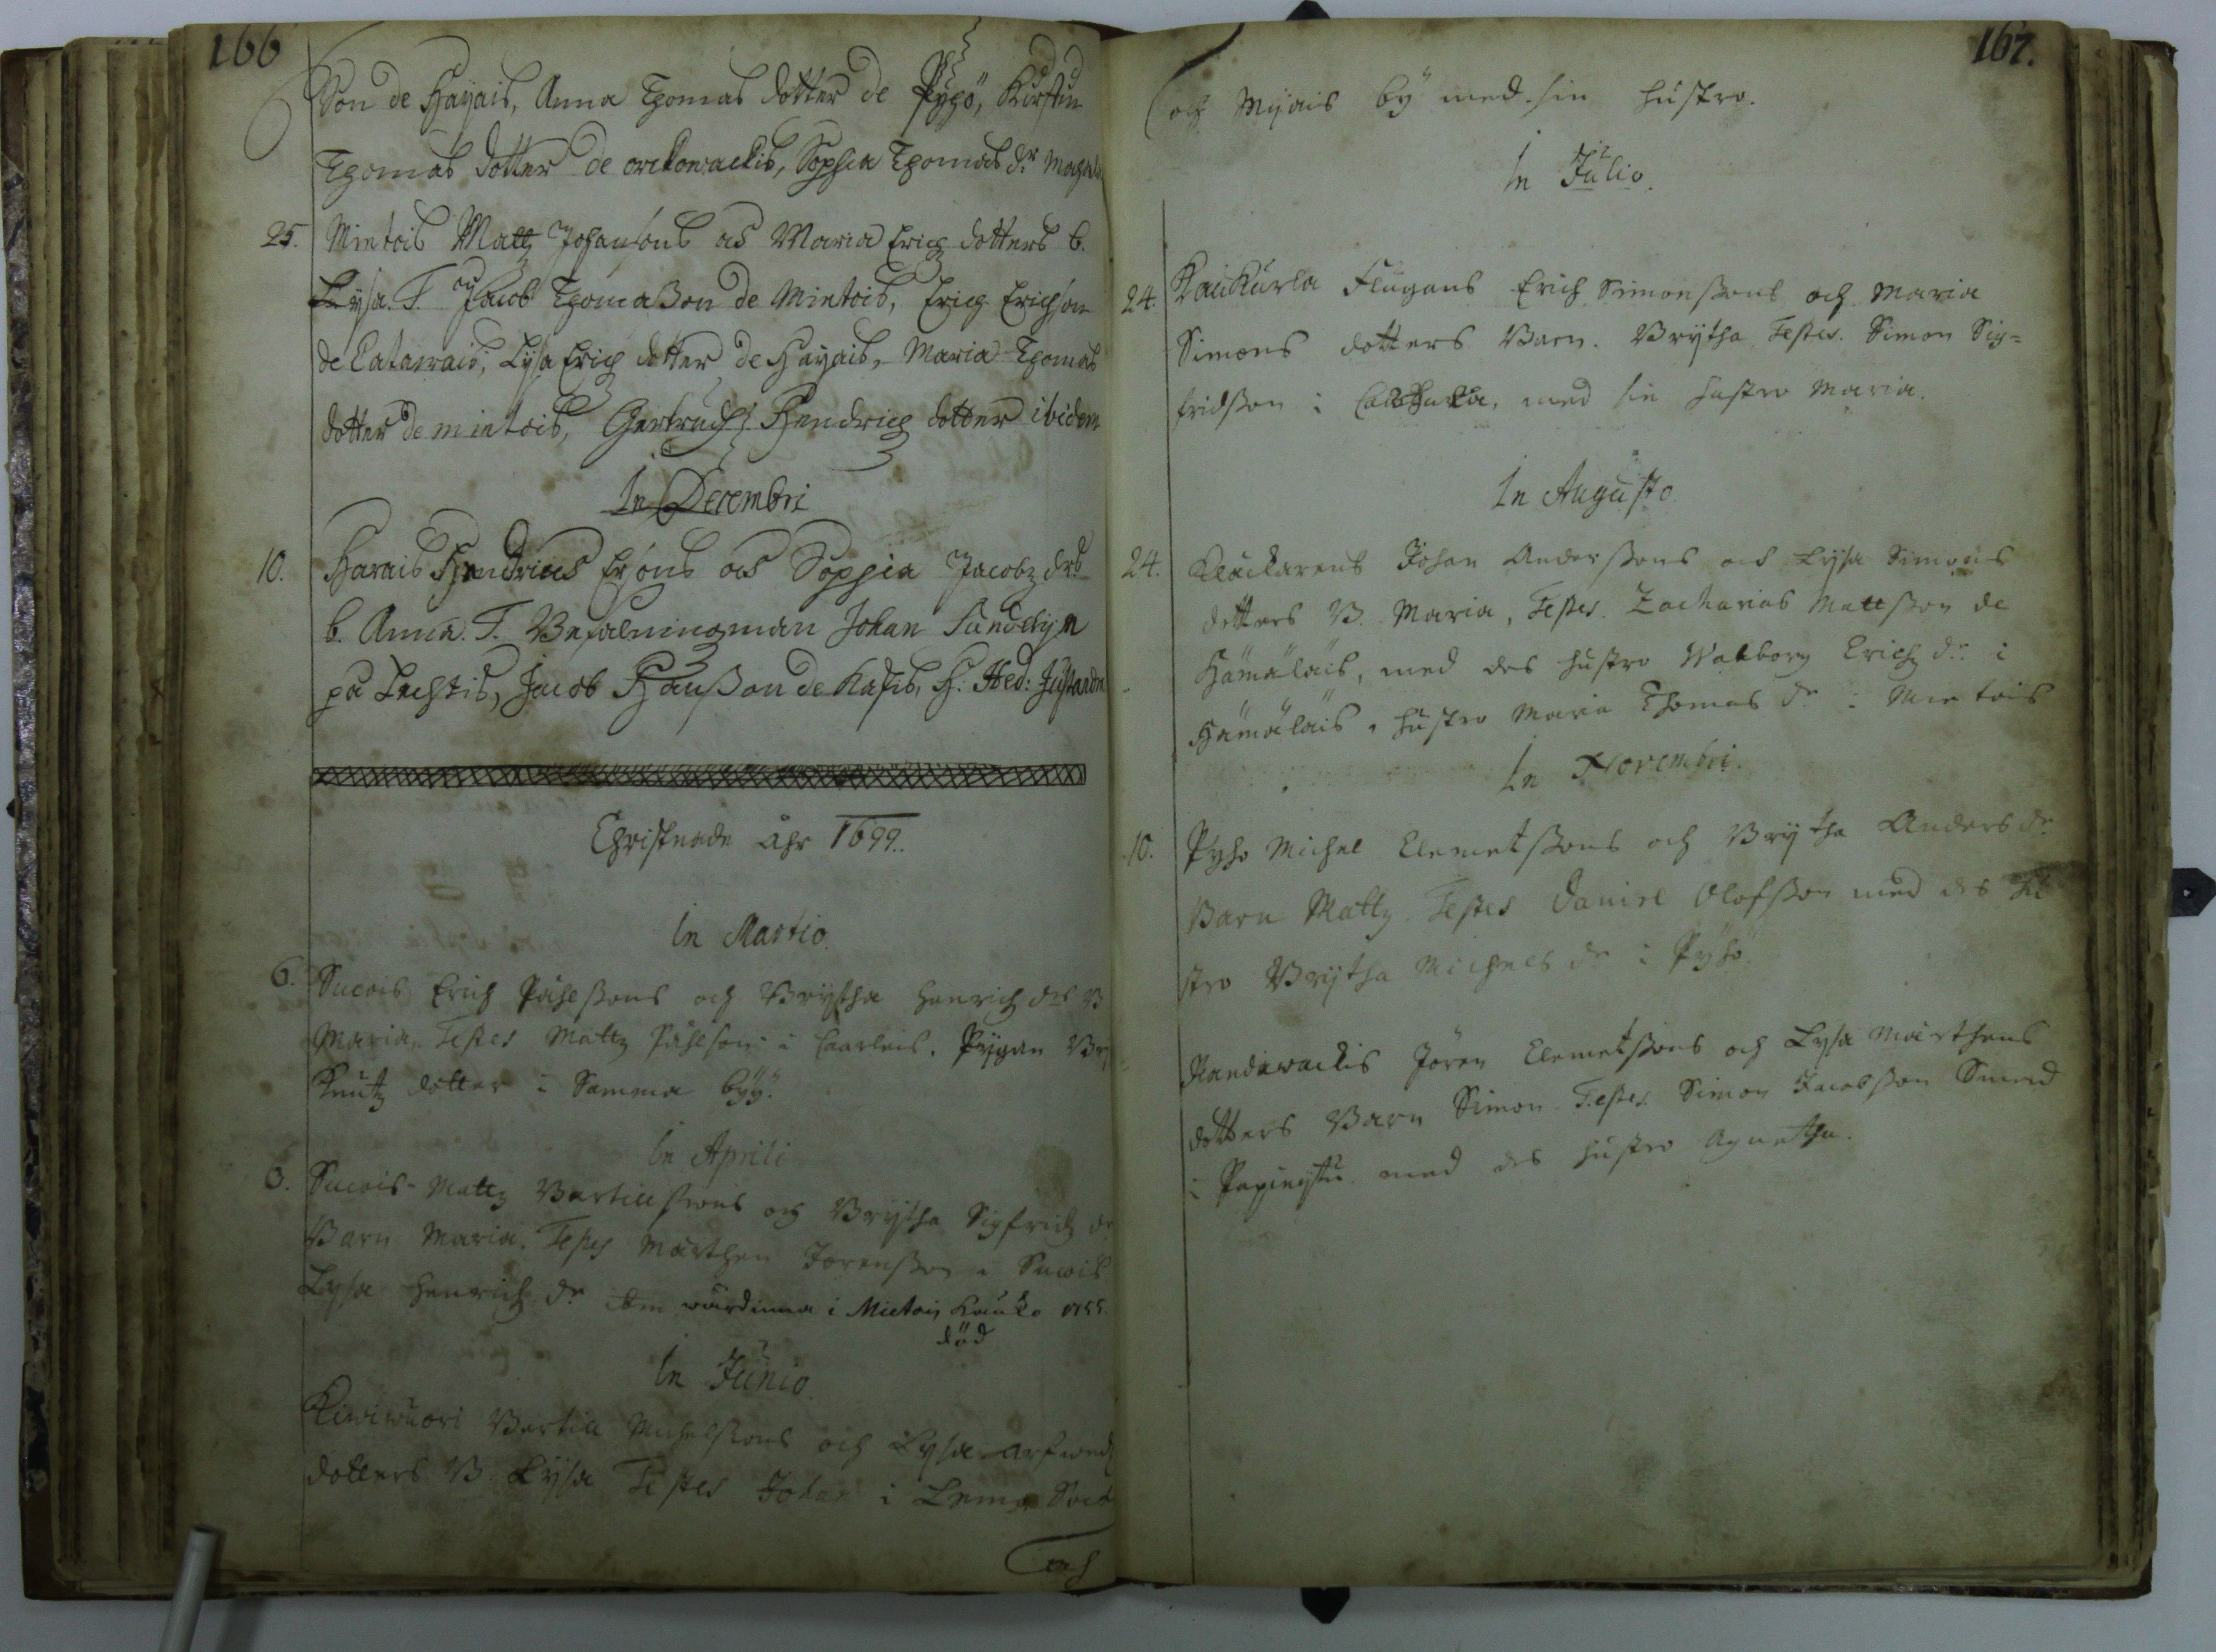 166
Son de Hayais, Anna Thomas dotter de Pyhö, Kirstin
Thomas dotter de orckowackis, Sophia Thomas dr
25. Mintois Matz Johansons och Maria Erichz dotters b.
Lysa. T. Jacob Thomasson de Mintois, Erich Erichson
de Catawais, Lysa Erichz dotter de Hayais, Maria Thomas
dotter de mintois, Gertrudh Hendrichz dotter ibidem
In Decembri
10. Harais Hendrics Ersons och Sophia Jacobz drs
b. Anna. T. Befalningzman Johan Sundelijn
på Lechtis, Jacob Hansson de Kasis, H. Hed:
Christnade åhr 1699.
In Martio.
6. Sucois Erich Påhlssons och Brytha Henrichz drs B
Maria, Testes Matz Påhlson i Caarleis. Pigan Bry
Knutz dotter i Samma byy.
In Aprili
3. Sucois Matz Bertillssons och Brytha Sigfridz dr
Barn Maria. Testes Mårthen Jörensson i Suois
Lysa Henrichz dr wärdinna i Mietois Kauko 1755.
död
In Junio.
Kiwiwuori Bertill Michelssons och Lysa Arfwedz
dotters B. Lysa Testes Johan i Lemo Sock
och
167.
och Mijais by med sin hustro.
In Julio.
24. Kaukurla Flugans Erich Simonssons och Maria
Simons dotters Barn. Brytha Testes. Simon Sig=
fridsson i med sin hustro Maria.
In Augusto
24. Klockarens Johan Anderssons och Lysa Simons
dotters B. Maria, Testes. Zacharias Mattsson de
Hämäläis, med des hustro Walborg Erichz dr i
Hämäläis, hustro Maria Thomas dr i Mietois
In Novembri.
10. Pyhö Michel Clemetssons och Brytha Anders dr
Barn Matz Testes Daniel Olofsson med des hu
stro Brytha Michels dr i Pyhö.
Randawackis Jören Clemetssons och Lysa Mårthens
dotters Barn Simon Testes Simon Jacobsson Smed
i med des hustro Agnetha.